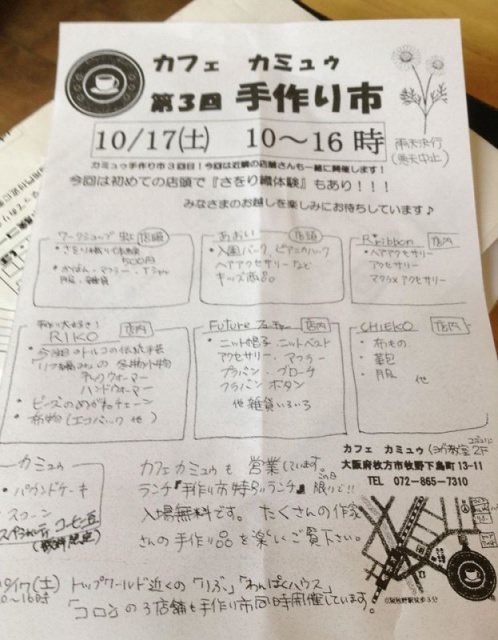 カフェ カミュウ
第3回 手作り市
10/17(土) 10～16時
雨天決行
(荒天中止)
カミュウ手作り市3回目！今回は近隣の店舗さんも一緒に開催します！
今回は初めての店頭で『さをり織体験』もあり！！！
みなさまのお越しを楽しみにお待ちしています♪
ワークショップ 店頭
・さをり織り
500円
・かばん・マフラー・
服・雑貨
あおい 店頭
・入園バック、ピアニカケース
ヘアアクセサリーなど
キッズ商品
Ribbon 店内
・ヘアアクセサリー
アクセサリー
マクラメアクセサリー
店内
RIKO
・今回はトルコの伝統手芸
の 冬物小物
ネックウォーマー
ハンドウォーマー
・ビーズのめがねチェーン
・布物(エコバック 他)
Future 店内
・ニット帽子・ニットベスト
アクセサリー・マフラー
プラバン・ブローチ
プラバン ボタン
他 雑貨いろいろ
CHIEKO 店内
・布もの
・革包
・服 他
カミュウ
・パウンドケーキ
・スコーン
コーヒー豆
(数時限定)
カフェカミュウも 営業しています。
ランチ『手作り市特別ランチ』この日限り!!
入場無料です。たくさんの作家
さんの手作り品を楽しくご覧下さい。
カフェ カミュウ(ヨガ教室2F
大阪府枚方市牧野下島町13-11
TEL 072-865-7310
10/17(土) トップワールド近くの「りぶ」「わんぱくハウス」
10～16時 「コロン」の3店舗も手作り市同時開催しています。